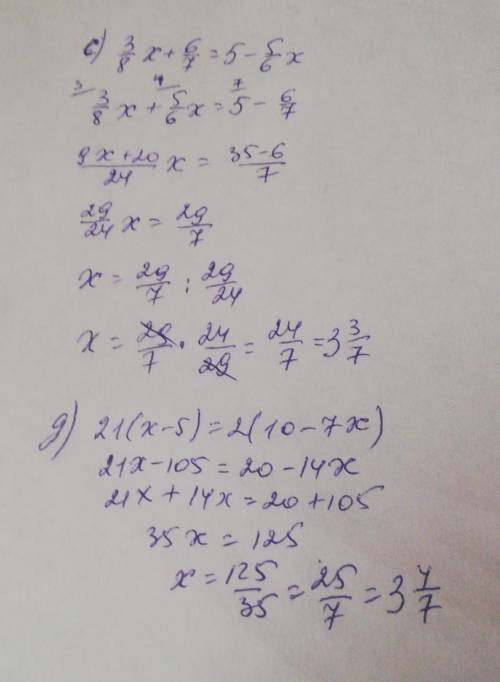 c) 3/8 x + 6/7 = 5 - 5/6 x
3 3/8 x + 4 5/6 x = 7 5 - 6/7
9x+20/24 x = 35-6/7
29/24 x = 29/7
x = 29/7 : 29/24
x = 29/7 · 24/29 = 24/7 = 3 3/7
g) 21(x-5) = 2(10-7x)
21x-105 = 20-14x
21x + 14x = 20+105
35x = 125
x = 125/35 = 25/7 = 3 4/7